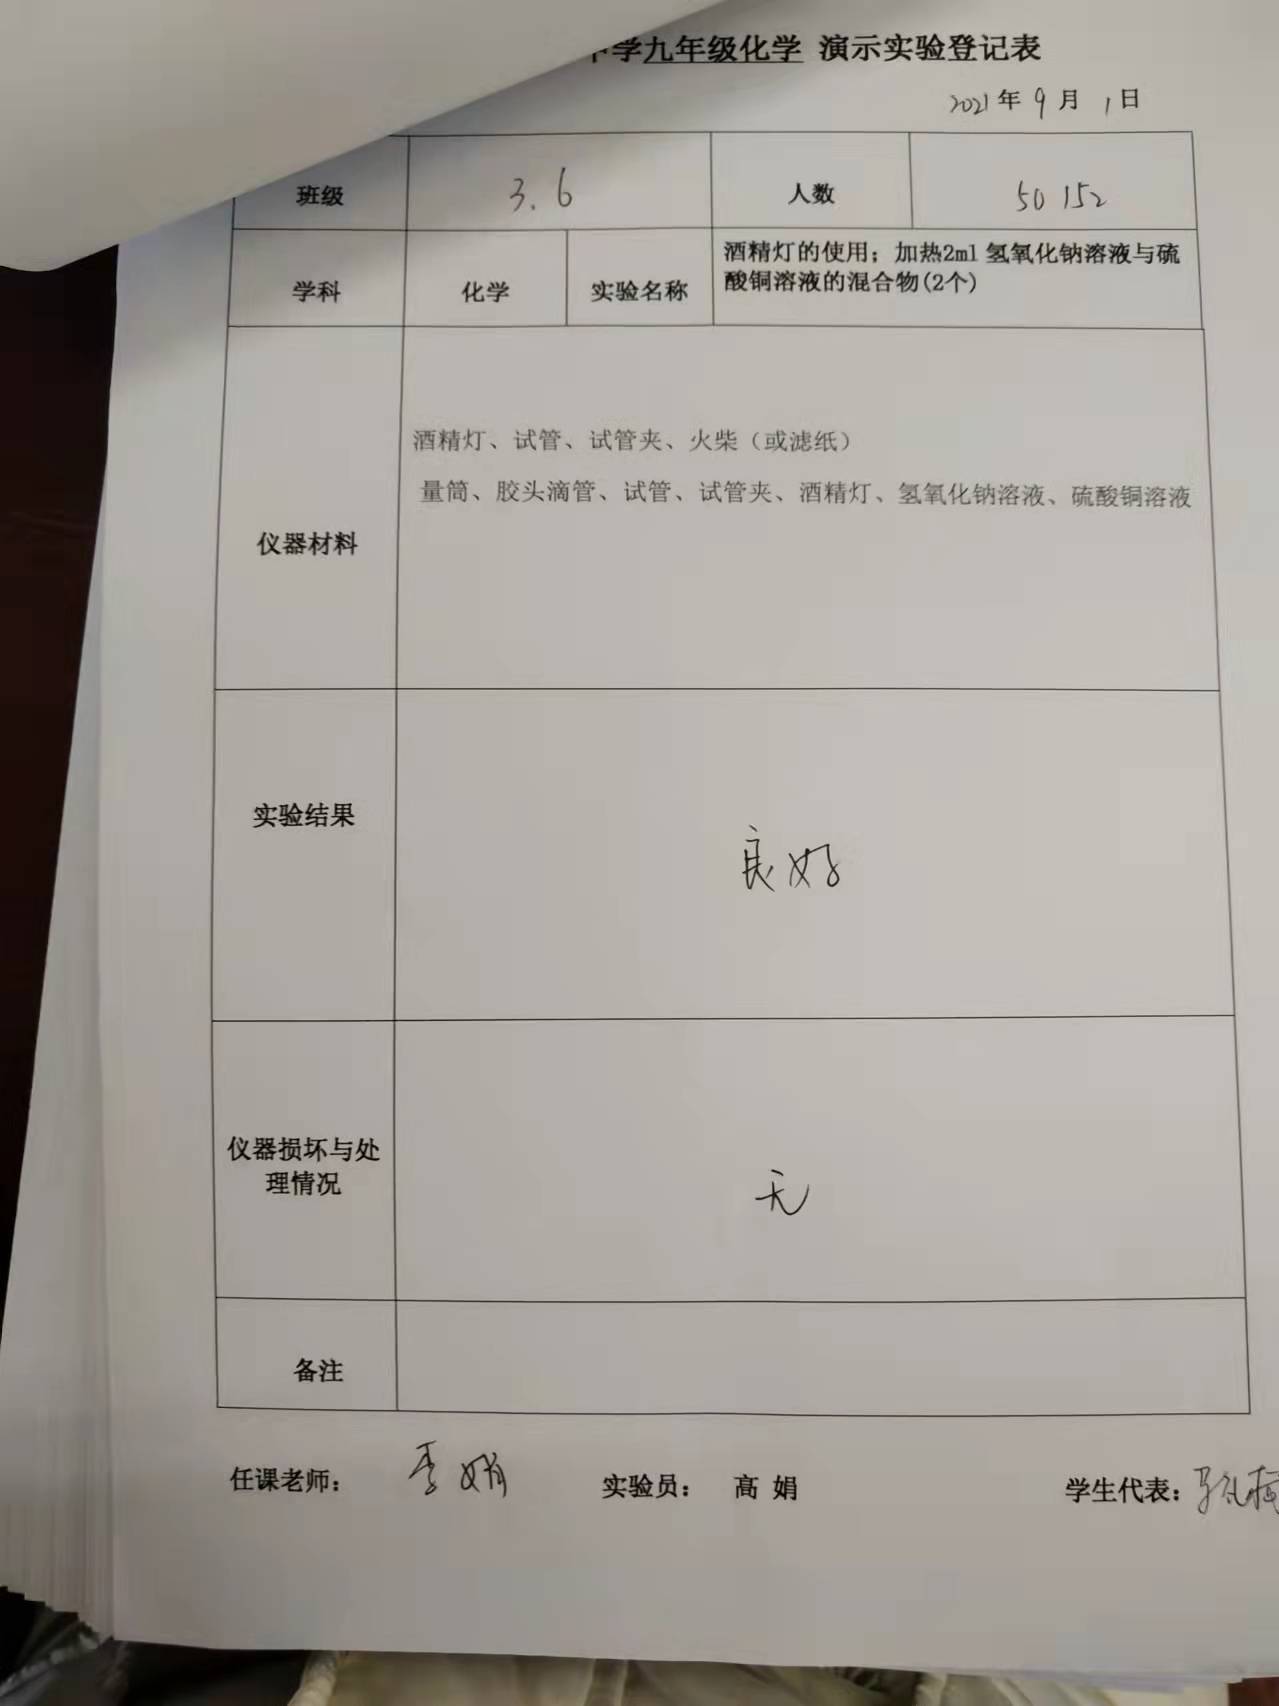 中学九年级化学 演示实验登记表
2021年 9月 1日
班级 3.6 人数 50 152
学科 化学 实验名称 酒精灯的使用；加热2ml 氢氧化钠溶液与硫
酸铜溶液的混合物(2个)
酒精灯、试管、试管夹、火柴（或滤纸）
量筒、胶头滴管、试管、试管夹、酒精灯、氢氧化钠溶液、硫酸铜溶液
仪器材料
实验结果
良好
仪器损坏与处
理情况
无
备注
任课老师： 李娟 实验员： 高 娟 学生代表：